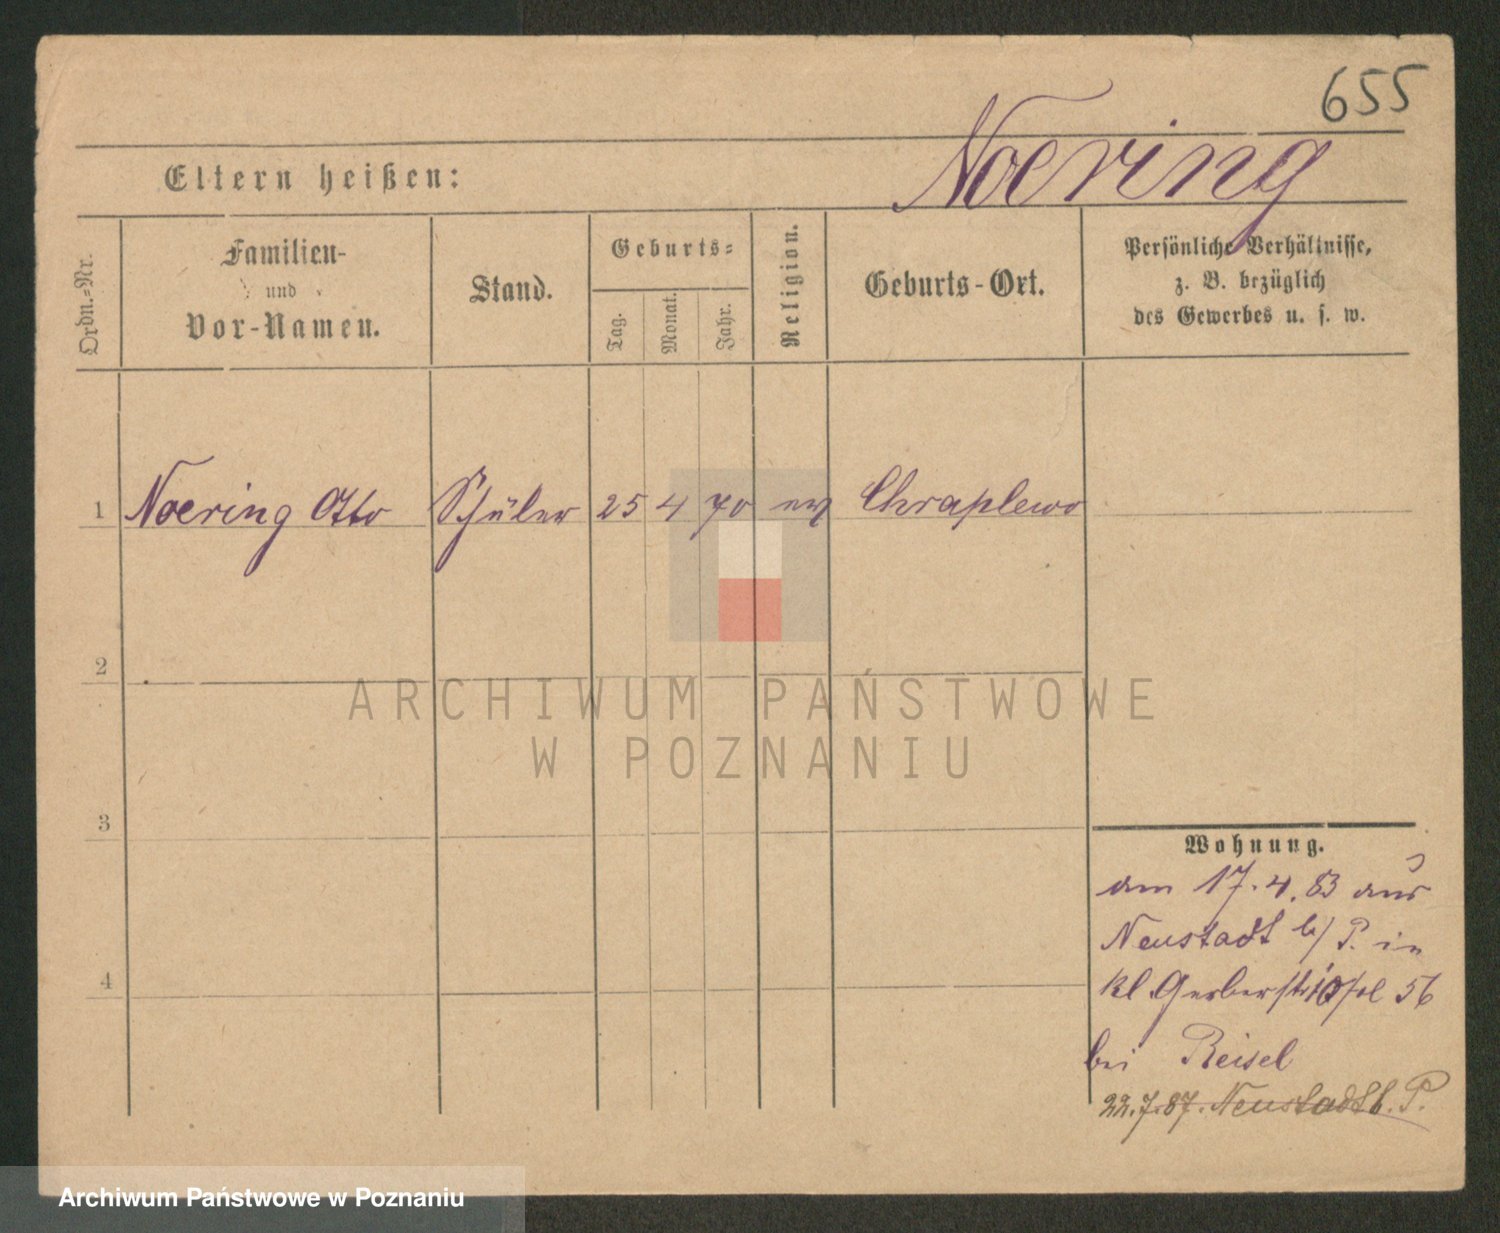 655
Noering
Eltern heißen:
Ordn.-Nr.
Familien-
und
Vor-Namen.
Stand.
Geburts-
Tag.
Monat.
Jahr.
Religion.
Geburts-Ort.
Persönliche Verhältnisse,
z. B. bezüglich
des Gewerbes u. s. w.
1 Noering Otto Schüler 25 4 70 ev Chraplewo
2
3
4
ARCHIWUM PAŃSTWOWE
W POZNANIU
Wohnung.
am 17. 4. 83 aus
Neustadt b/ P. in
kl Gerberstr 56
bei Reisel
22.7.87. Neustadt b. P.
Archiwum Państwowe w Poznaniu